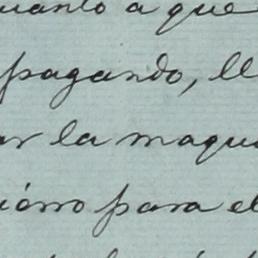 uanto a que
pagando, ll
ar la maqu
iórro para el